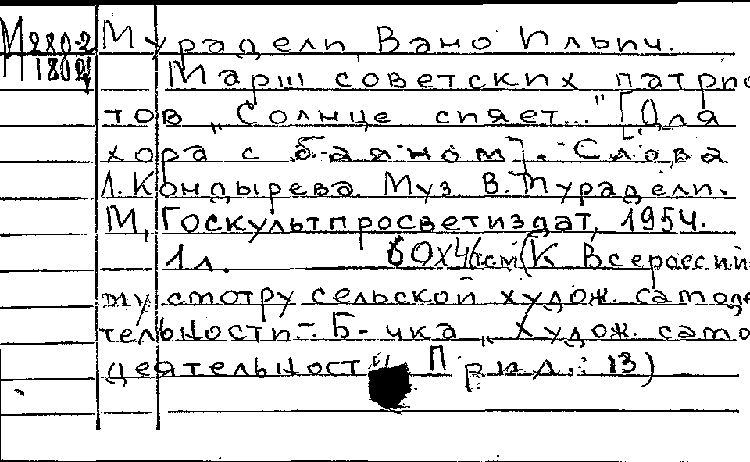 М 280-2 Мурадели, Вано Ильич.
П 1804 Марш советских патрио
тов „Солнце сияет..." [Для
хора с баяном]. Слова
Л. Кондырева. Муз В. Мурадели.
М, Госкультпросветиздат, 1954.
1 л. 60х46см (К Всероссий
му смотру сельской худож. самоде
тельности-. Б-чка „Худож. само
деятельност Прил.: 13)